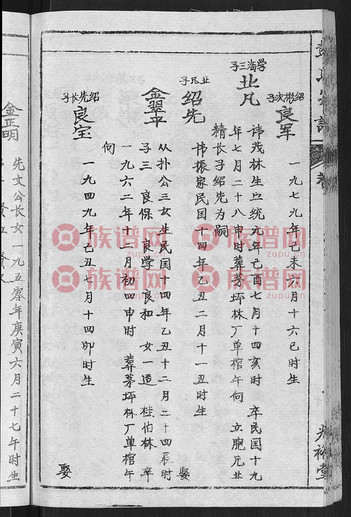 绍彬次子
良军
一九七九年己未六月十六巳时生
学海三子
业凡
讳茂林生宣统九年己酉七月十四亥时 卒民国十九
年七月二十八申时葬茅坪林厂单棺午向 立胞兄业
精长子绍先为嗣
业凡子
绍先
讳振家民国十四年乙丑二月十一丑时生 娶
金翠平
从扑公三女生民国十四年乙丑十二月二十四辰时
子三 良保 良学 良和 女一适 桂伯林 卒
一九六二年 月初四申时 葬茅坪林厂单棺午
向
绍先长子
良宝
一九四九年己丑七月十四卯时生 娶
金正明
先文公长女一九五零年庚寅六月二十七午时生
族谱网
zupu.cn
光裕堂